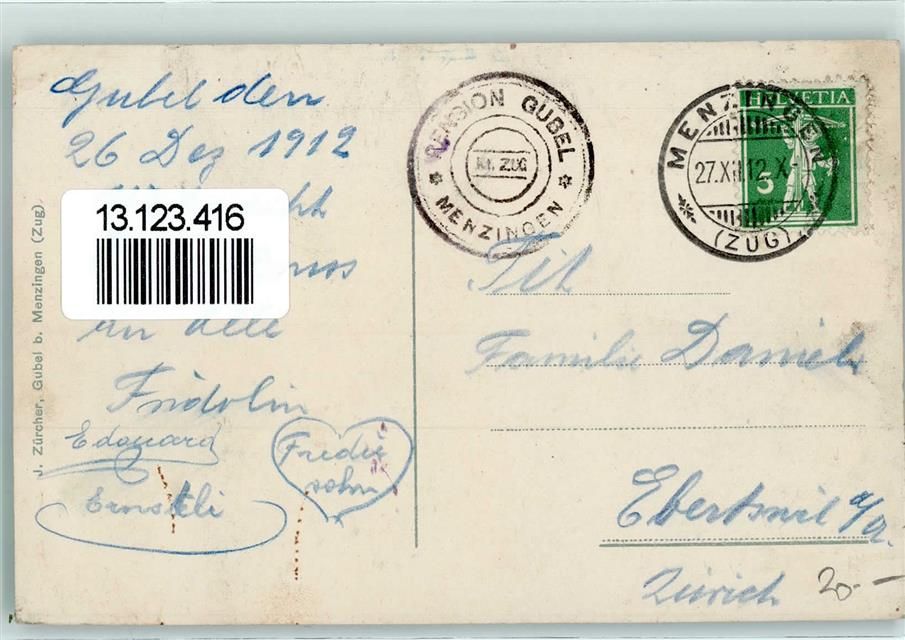 Gubel den
26 Dez 1912
13.123.416
an alle
Fridolin
Edouard
Ernstli
Fredis
sohn
J. Zürcher, Gubel b. Menzingen (Zug)
PENSION GUBEL
Kt. ZUG
MENZINGEN
HELVETIA
5
MENZINGEN
27.XII.12.X-
(ZUG)
Tit
Familie Daniel
Ebertswil a/A.
Zürich
20.-